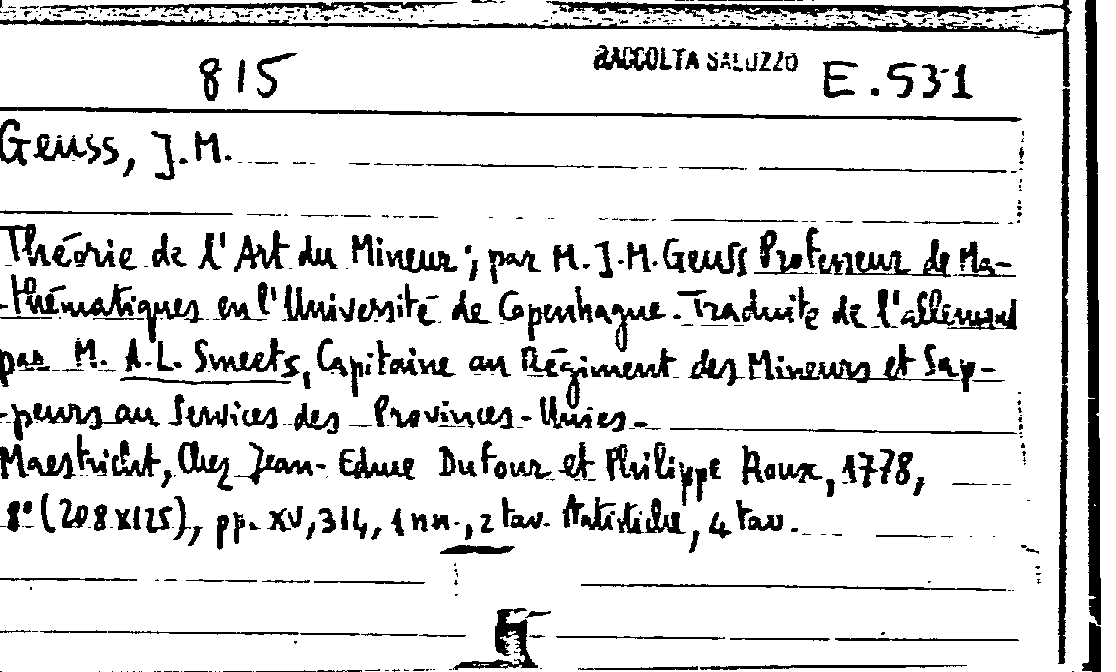 815 RACCOLTA SALUZZO E.531
Geuss, J.M.
Théorie de l'Art du Mineur; par M. J.M. Geuss Professeur de Ma-
-thématiques en l'Université de Copenhague. Traduite de l'allemand
par M. A.L. Smeets, Capitaine au Régiment des Mineurs et Sap-
-peurs au Services des Provinces-Unies-
Maestricht, Chez Jean-Edme Dufour et Philippe Roux, 1778,
8° (208x125), pp. XV, 314, 1 nn., 2 tav. statistiche, 4 tav.